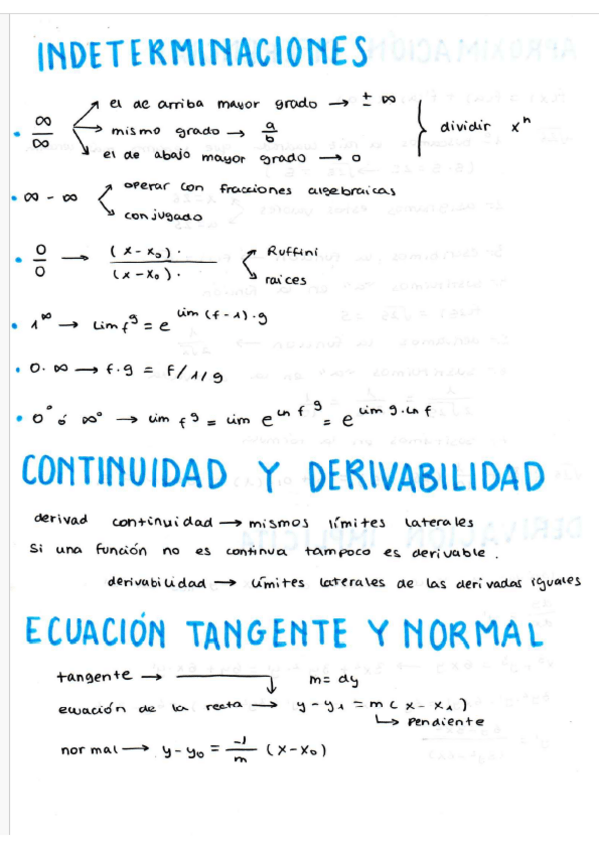 INDETERMINACIONES
el de arriba mayor grado → ± ∞
• ∞/∞ → mismo grado → a/b } dividir xⁿ
el de abajo mayor grado → 0
• ∞ - ∞ operar con fracciones algebraicas
conjugado
• 0/0 → (x - x₀)· / (x - x₀)· Ruffini
raices
• 1^∞ → lim f^g = e^(lim (f-1)·g)
• 0·∞ → f·g = f/1/g
• 0° ó ∞° → lim f^g = lim e^(ln f^g) = e^(lim g·ln f)
CONTINUIDAD Y DERIVABILIDAD
derivad continuidad → mismos límites laterales
Si una función no es continua tampoco es derivable.
derivabilidad → límites laterales de las derivadas iguales
ECUACIÓN TANGENTE Y NORMAL
tangente → m = dy
ecuación de la recta → y - y₁ = m (x - x₁)
↳ Pendiente
normal → y - y₀ = -1/m (x - x₀)